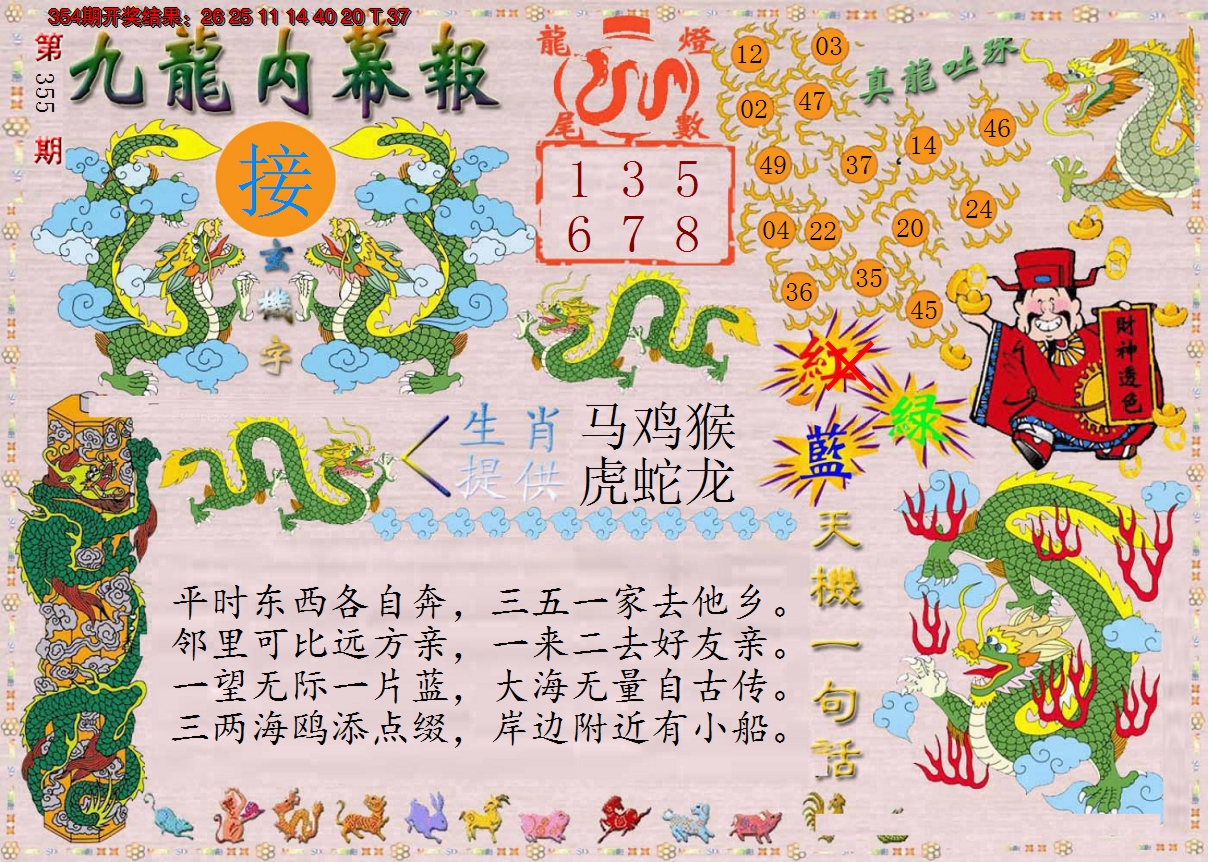 354期开奖结果：26 25 11 14 40 20 T 37
第355期
九龍內幕報
接
玄機字
龍燈
尾數
1 3 5
6 7 8
真龍吐珠
12 03
02 47
49 37 14 46
04 22 20 24
36 35 45
紅
綠
藍
財神透色
生肖提供
马鸡猴
虎蛇龙
天機一句話
平时东西各自奔，三五一家去他乡。
邻里可比远方亲，一来二去好友亲。
一望无际一片蓝，大海无量自古传。
三两海鸥添点缀，岸边附近有小船。